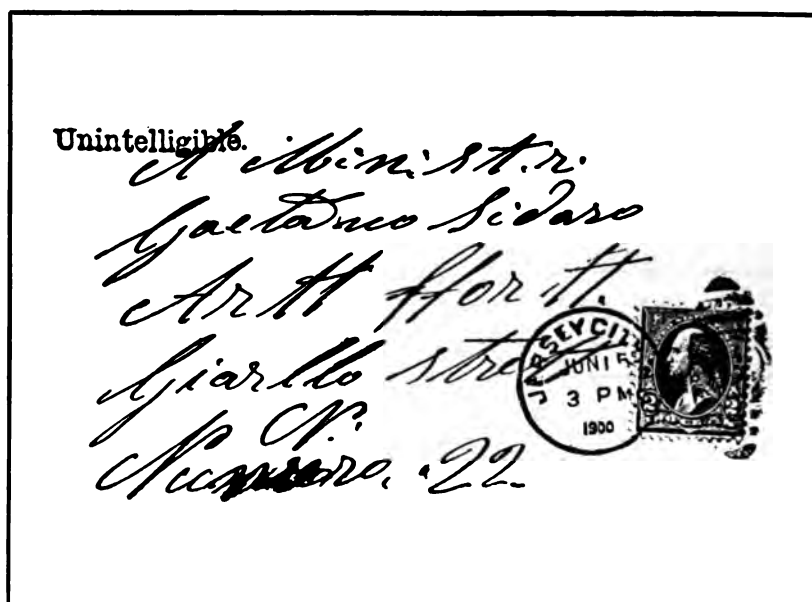 Unintelligible.
A Ministr.
Gaetano Sidaro
Artt ffortt.
Giarllo street
N.
Numero. 22
JERSEY CITY
JUN 15
3 PM
1900